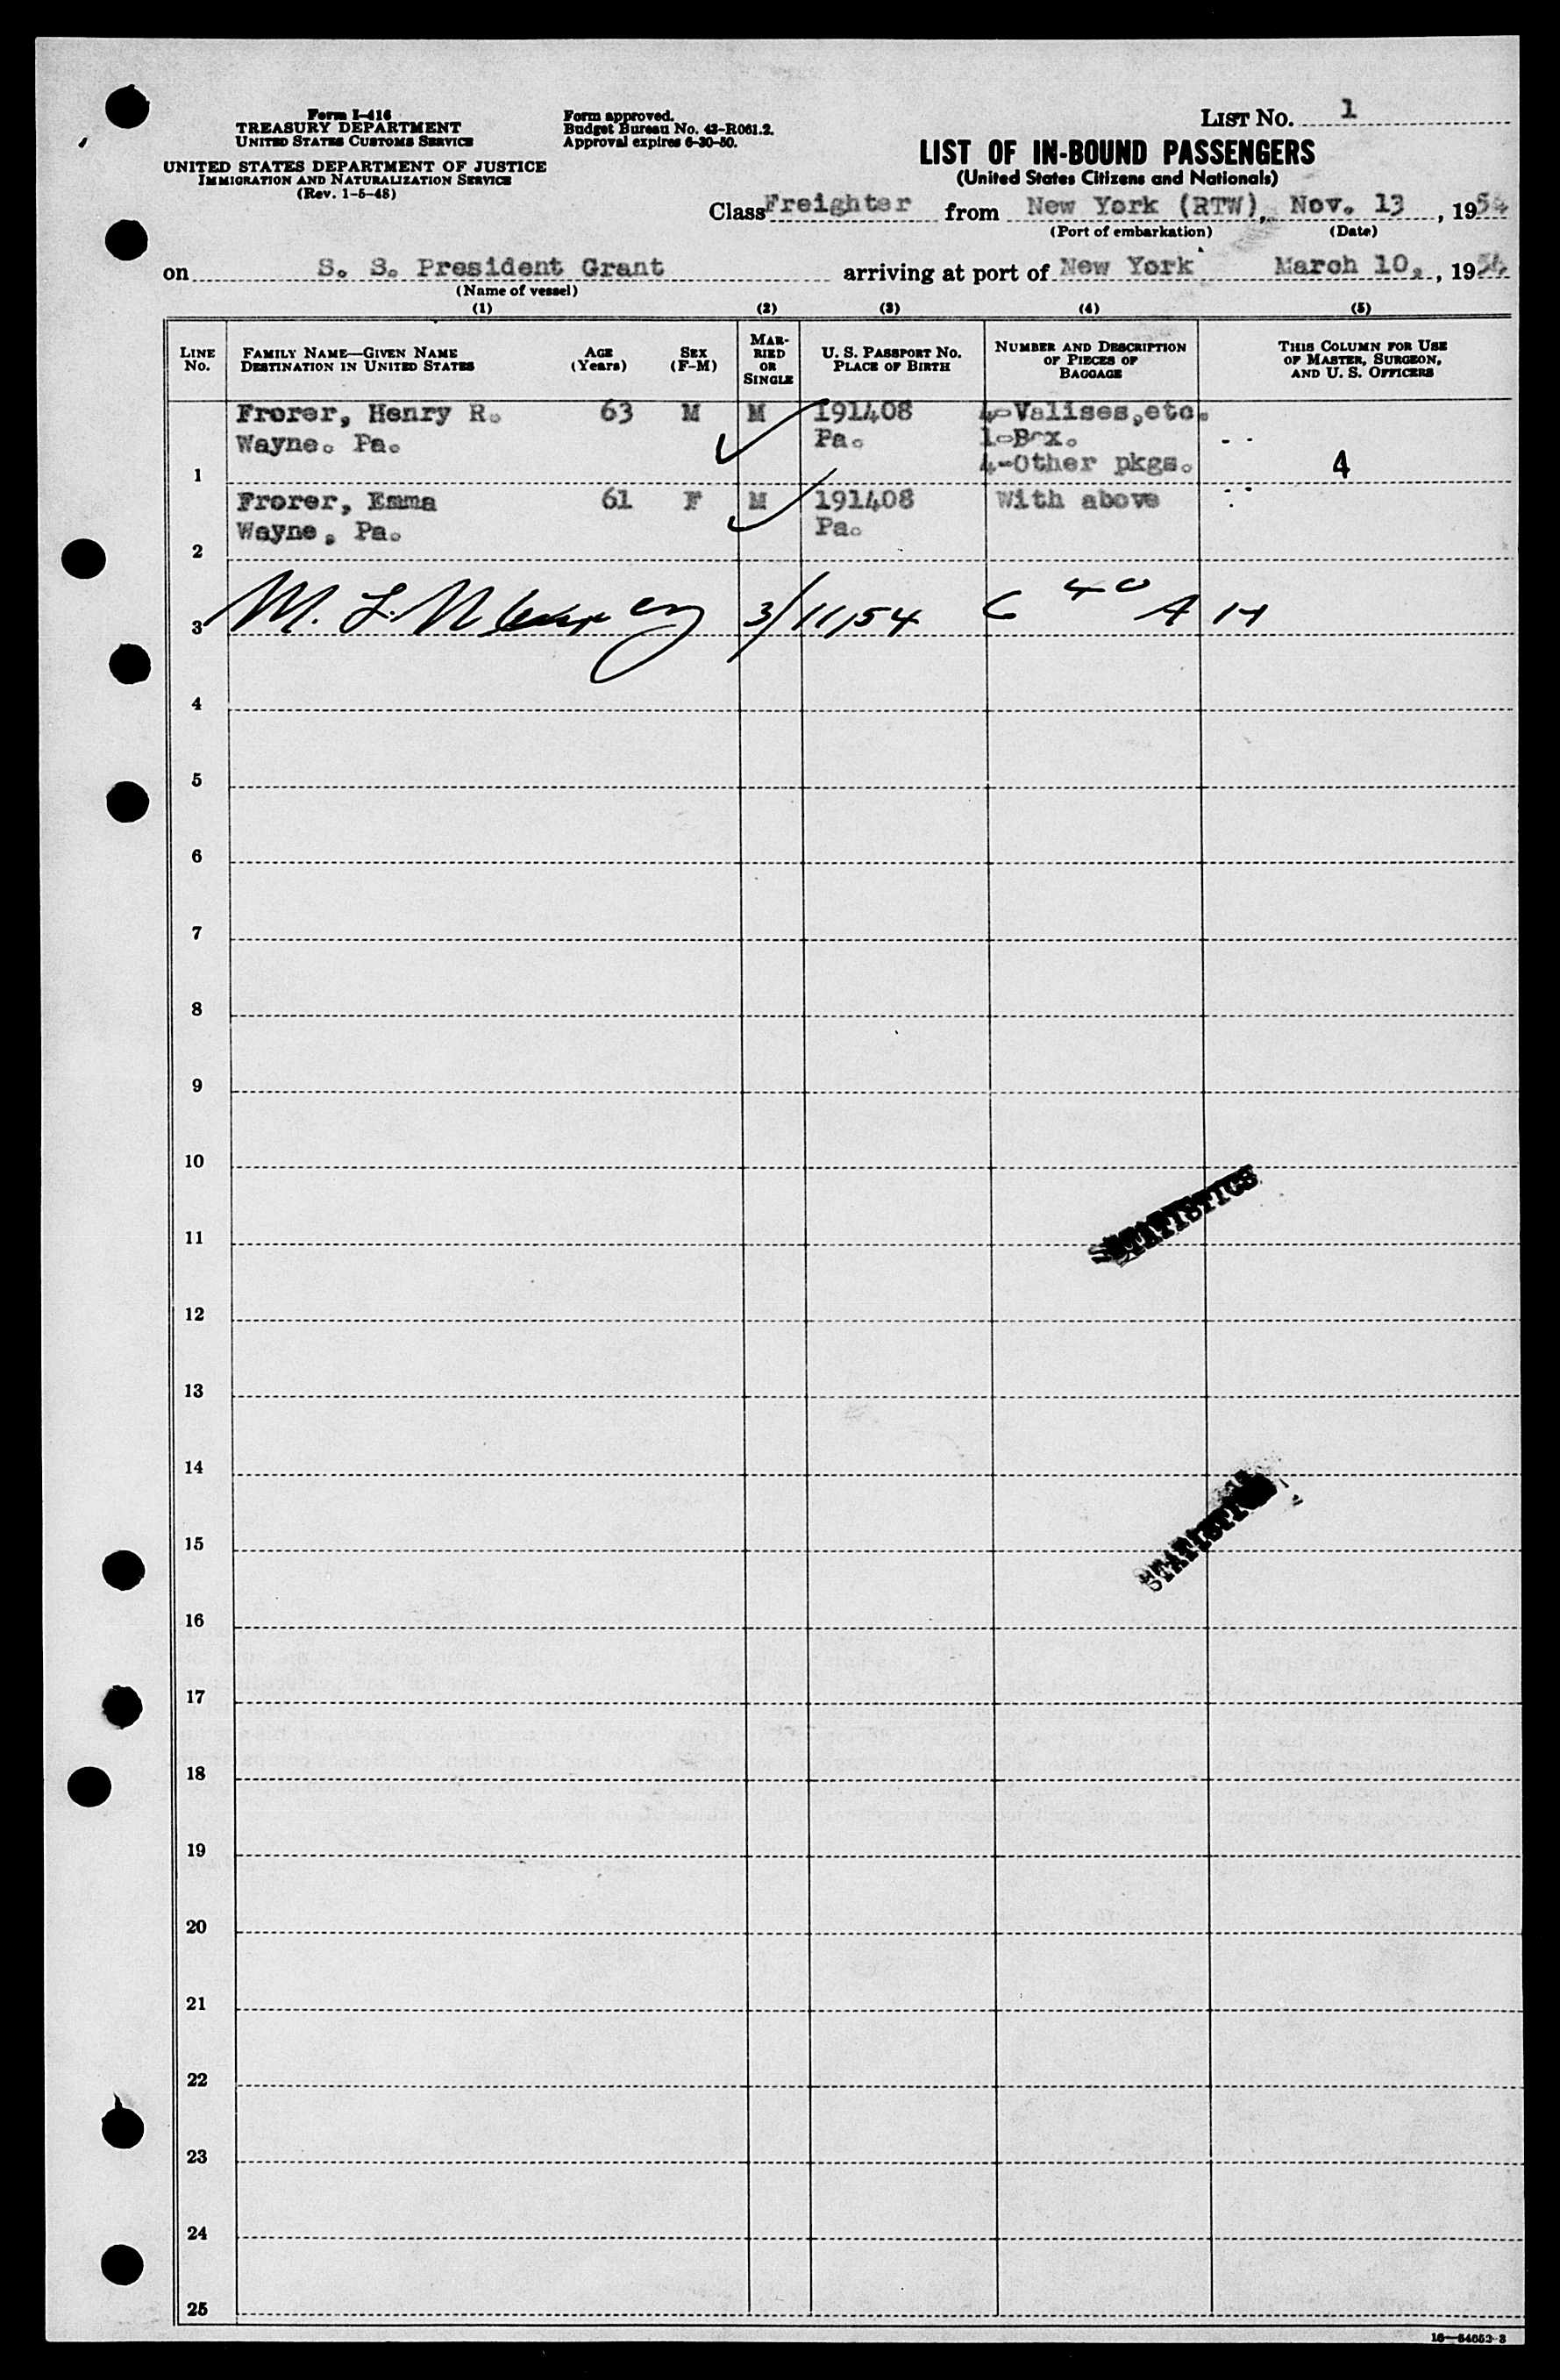 Form I-416
TREASURY DEPARTMENT
UNITED STATES CUSTOMS SERVICE
UNITED STATES DEPARTMENT OF JUSTICE
IMMIGRATION AND NATURALIZATION SERVICE
(Rev. 1-5-48)
Form approved.
Budget Bureau No. 43-R061.2.
Approval expires 6-30-50.
LIST NO. 1
LIST OF IN-BOUND PASSENGERS
(United States Citizens and Nationals)
Class Freighter from New York (RTW), Nov. 13, 1954
(Port of embarkation) (Date)
on S. S. President Grant arriving at port of New York March 10, 1954
(Name of vessel)
(1) (2) (3) (4) (5)
LINE NO.
FAMILY NAME—GIVEN NAME
DESTINATION IN UNITED STATES
AGE
(Years)
SEX
(F-M)
MARRIED
OR
SINGLE
U. S. PASSPORT NO.
PLACE OF BIRTH
NUMBER AND DESCRIPTION
OF PIECES OF
BAGGAGE
THIS COLUMN FOR USE
OF MASTER, SURGEON,
AND U. S. OFFICERS
Frorer, Henry R. 63 M M 191408 4-Valises,etc.
Wayne. Pa. Pa. 1-Box.
1 4-Other pkgs. 4
Frorer, Emma 61 F M 191408 With above
Wayne, Pa. Pa.
2
3 M. L. 3/11/54 6 40 A H
4
5
6
7
8
9
10
STATISTICS
11
12
13
14
STATISTICS
15
16
17
18
19
20
21
22
23
24
25
16—54652-3